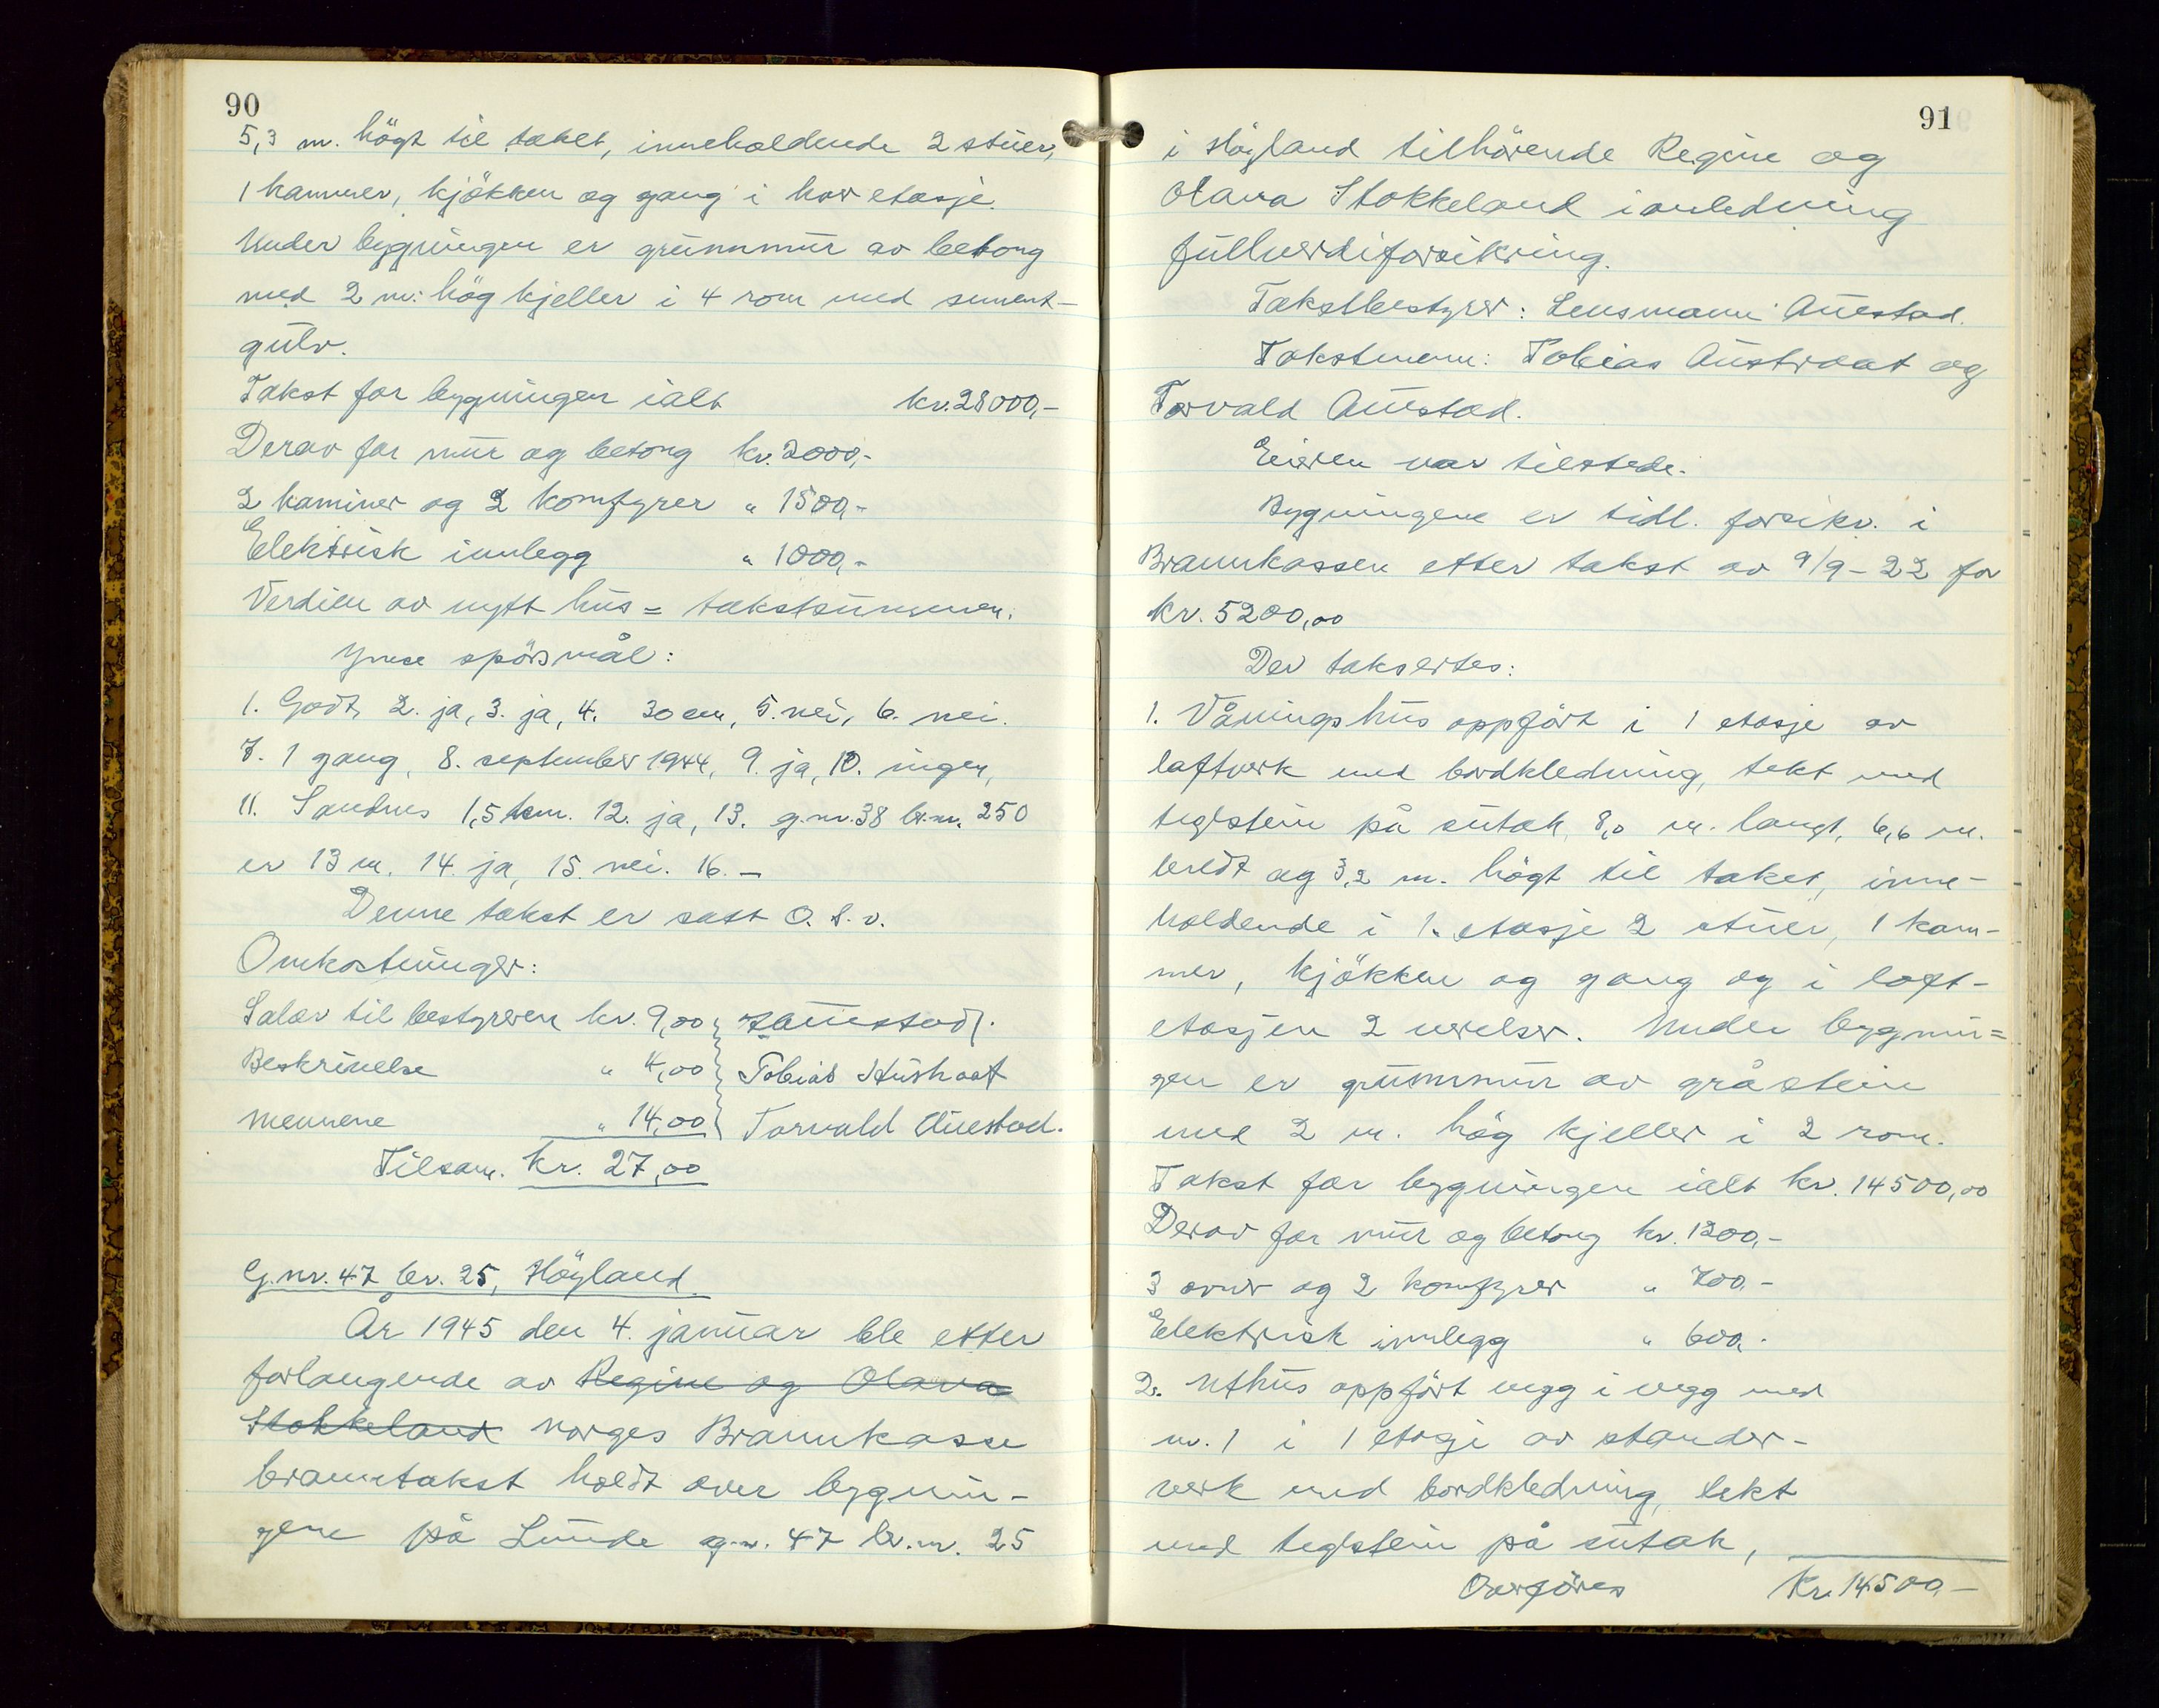 90
5,3 m. högt til taket, inneholdende 2 stuer,
1 kammer, kjökken og gang i hver etasje.
Under bygningen er grunnmur av betong
med 2 m. hög kjeller i 4 rom med sement-
gulv.
Takst for bygningen ialt kr. 28000,-
Derav for mur og betong kr. 2000,-
2 kaminer og 2 komfyrer " 1500,-
Elektrisk innlegg " 1000,-
Verdien av nytt hus = takstsummen.
Ymse spörsmål:
1. Godt, 2. ja, 3. ja, 4. 30 cm, 5. nei, 6. nei.
7. 1 gang, 8. september 1944, 9. ja, 10. ingen,
11. Sandnes 1,5 km. 12. ja, 13. g.nr. 38 br.nr. 250
er 13 m. 14. ja, 15. nei. 16. -
Denne takst er satt O.s.v.
Omkostninger:
Salær til bestyreren kr. 9,00 Auestad.
Beskrivelse " 4,00 Tobias Austraat
mennene " 14,00 Torvald Auestad.
Tilsam. kr. 27,00
G.nr. 47 br. 25, Höyland.
År 1945 den 4. januar ble etter
forlangende av Regine og Olava
Stokkeland Norges Brannkasse
branntakst holdt over bygnin-
gene på Lunde g.nr. 47 br.nr. 25
91
i Höyland tilhörende Regine og
Olava Stokkeland i anledning
fullverdiforsikring.
Takstbestyrer: Lensmann Auestad.
Takstmenn: Tobias Austraat og
Torvald Auestad.
Eieren var tilstede.
Bygningene er tidl. forsikr. i
Brannkassen etter takst av 9/9-22 for
kr. 5200,00
Der taksertes:
1. Våningshus oppfört i 1 etasje av
laftverk med bordkledning, tekt med
teglstein på sutak, 8,0 m. langt, 6,6 m.
bredt og 3,2 m. högt til taket, inne-
holdende i 1. etasje 2 stuer, 1 kam-
mer, kjökken og gang og i loft-
etasjen 2 verelser. Under bygnin=
gen er grunnmur av gråstein
med 2 m. hög kjeller i 2 rom.
Takst for bygningen ialt kr. 14500,00
Derav for mur og betong kr. 1200,-
3 ovner og 2 komfyrer " 700,-
Elektrisk innlegg " 600,-
2. Uthus oppfört vegg i vegg med
nr. 1 i 1 etasje av stander-
verk med bordkledning, tekt
med teglstein på sutak,
Overföres Kr. 14500,-